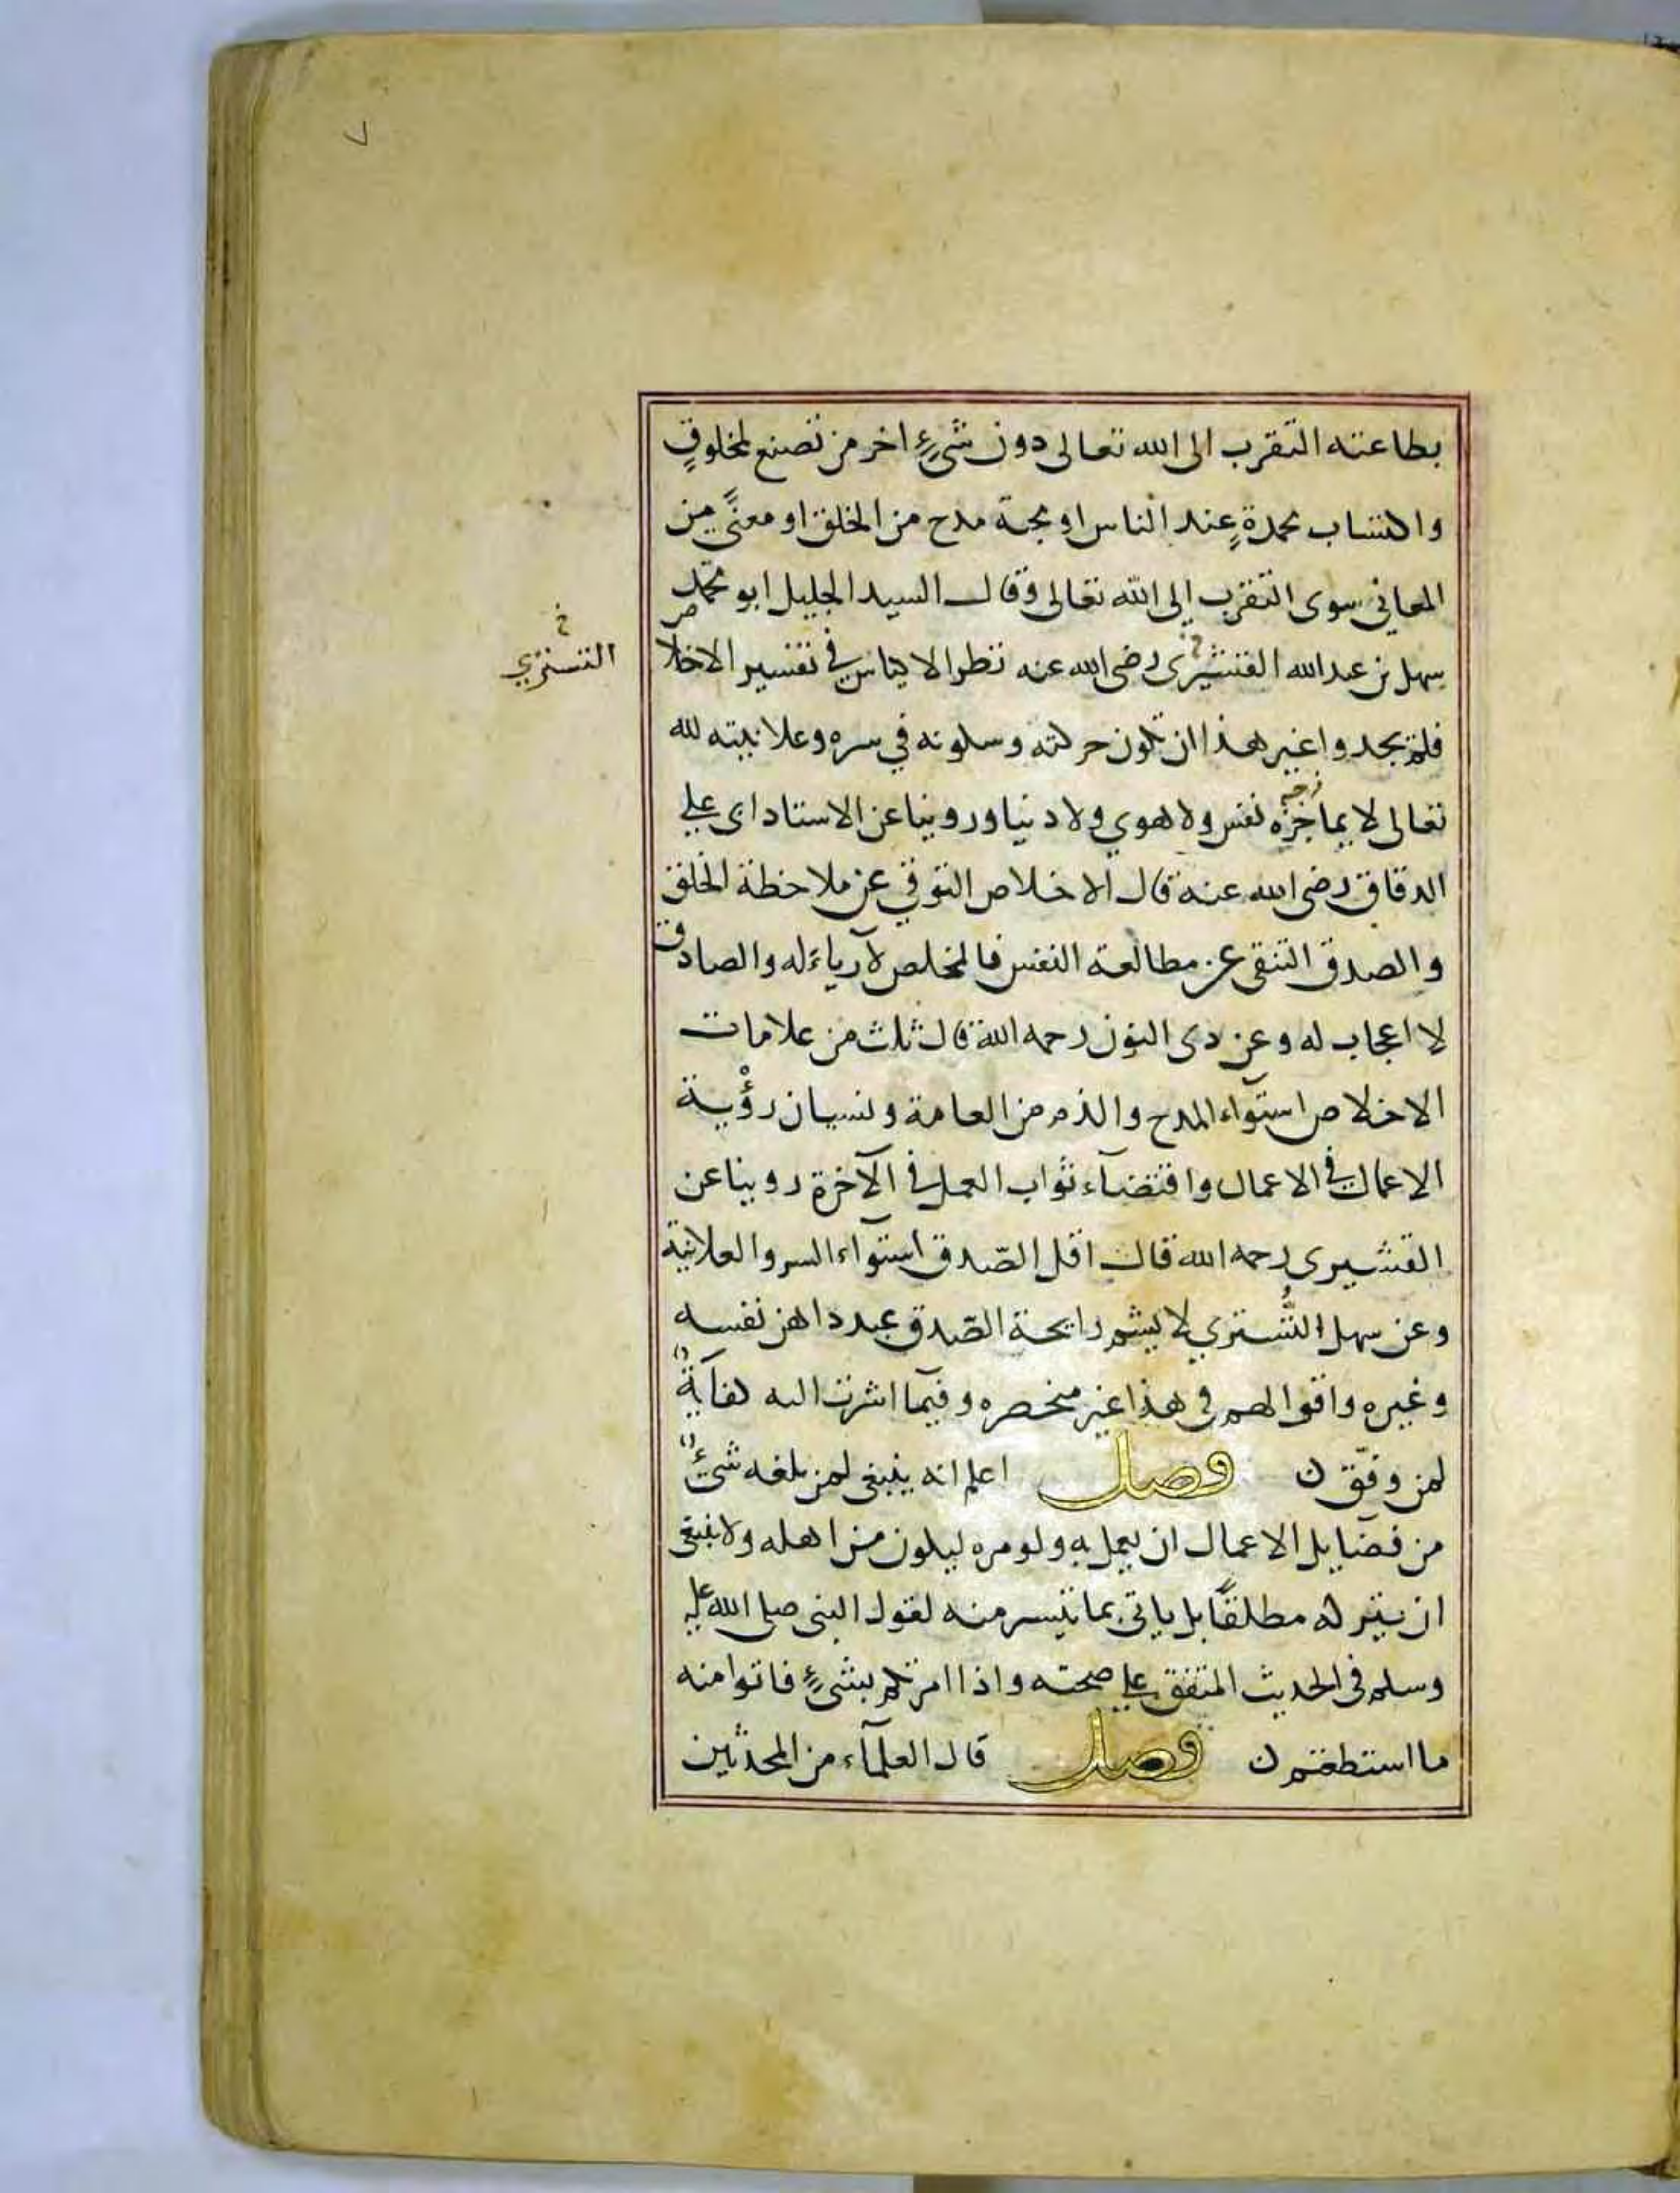 ٧
بطاعته التقرب الى الله تعالى دون شيءٍ اخر من تصنع لمخلوقٍ
واكتساب محمدةٍ عند الناس او محبة مدح من الخلق او معنًى من
المعاني سوى التقرب الى الله تعالى وقال السيد الجليل ابو محمد
سهل بن عبد الله القشيرى رضى الله عنه نظر الاكياس في تفسير الاخلاص
التستري
فلم يجدوا غير هذا ان تكون حركته وسكونه في سره وعلانيته لله
تعالى لا يمازجه نفس ولا هوي ولا دنيا وروينا عن الاستاد ابى علي
الدقاق رضى الله عنه قال الاخلاص التوقي عن ملاحظة الخلق
والصدق التنقى عن مطالعة النفس فالمخلص لا رياء له والصادق
لا اعجاب له وعن ذى النون رحمه الله قال ثلث من علامات
الاخلاص استوآء المدح والذم من العامة ونسيان رؤية
الاعمال في الاعمال واقتضآء ثواب العمل في الآخرة روينا عن
القشيرى رحمه الله قال اقل الصّدق استوآء السر والعلانية
وعن سهل التُّستري لا يشم رايحة الصّدق عبد داهن نفسه
وغيره واقوالهم في هذا غير منحصره وفيما اشرت اليه كفايةٌ
لمن وفّق ن فصل اعلم انه ينبغى لمن بلغه شيءٌ
من فضايل الاعمال ان يعمل به ولو مره ليكون من اهله ولا ينبغى
ان يتركه مطلقًا بل ياتى بما تيسر منه لقول النبى صلى الله عليه
وسلم فى الحديث المتفق على صحته واذا امرتكم بشيءٍ فاتوا منه
ما استطعتم ن فصل قال العلمآء من المحدثين